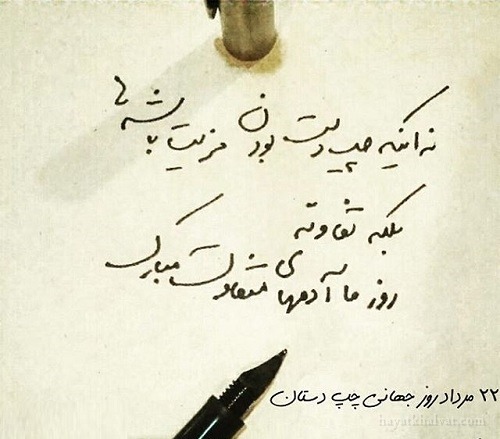 نه اینکه چپ دست بودن مزیت باشه ها
بلکه تفاوته
روز ما آدمهای متفاوت مبارک
۲۲ مرداد روز جهانی چپ دستان
hayatkhalvat.com